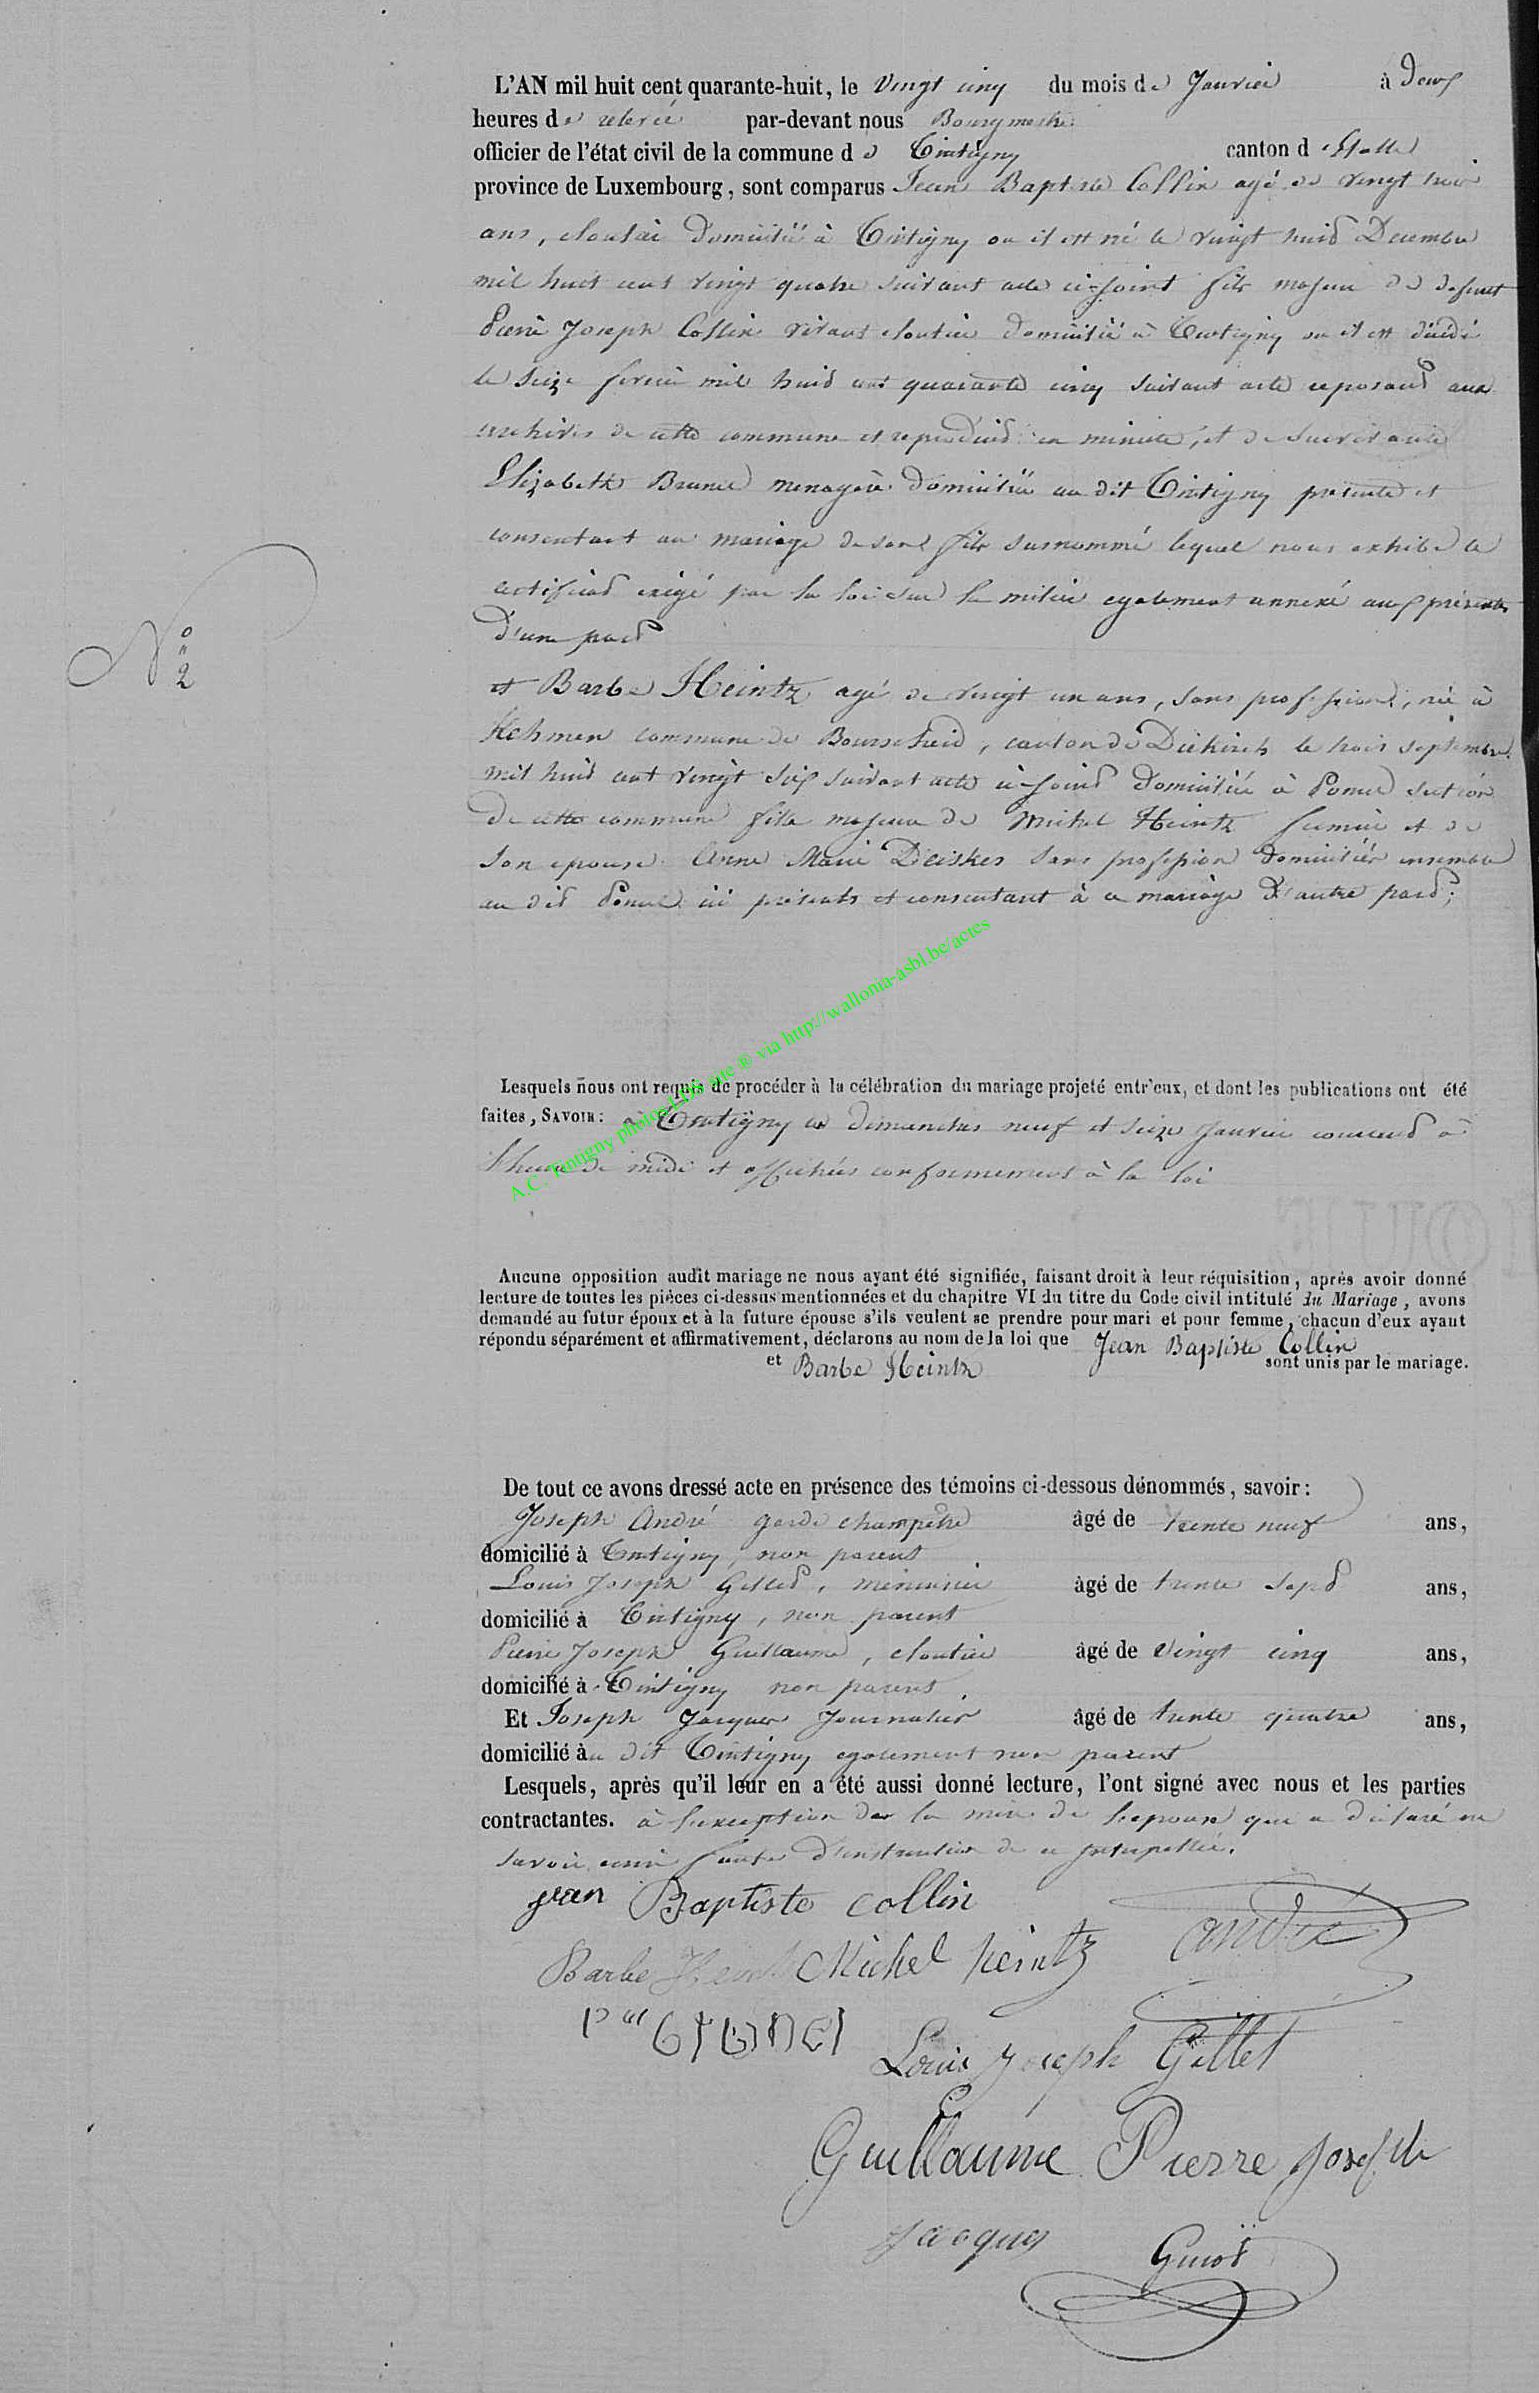 L'AN mil huit cent quarante-huit, le Vingt cinq du mois de Janvier à deux
heures de relevée par-devant nous Bourgmestre
officier de l'état civil de la commune de Tintigny canton d'Etalle
province de Luxembourg, sont comparus Jean Baptiste Collin agé de vingt trois
ans, cloutier domicilié à Tintigny ou il est né le vingt huit Decembre
mil huit cent vingt quatre suivant acte ci-joint fils majeur de defunt
Pierre Joseph Collin vivant cloutier domicilié à Tintigny ou il est décédé
le seize fevrier mil huit cent quarante cinq suivant acte reposant aux
archives de cette commune et reproduit en minute, et de survivante
Elizabeth Brunel menagère domiciliée au dit Tintigny présente et
consentant au mariage de son fils surnommé lequel nous exhibe le
certificat exigé par la loi sur la milice egalement annexé aux présentes
d'une part
et Barbe Heintz agé de vingt un ans, sans profession, née à
Kehmen commune de Bourscheid, canton de Diekirch le trois septembre
mil huit cent vingt six suivant acte ci-joint domiciliée à Ponsel section
de cette commune fille majeure de Michel Heintz fermier et de
son epouse Anne Marie Deiskes sans profession domiciliés ensemble
au dit ici présents et consentant à ce mariage d'autre part;
N° 2
Lesquels nous ont requis de procéder à la célébration du mariage projeté entr'eux, et dont les publications ont été
faites, SAVOIR: à Tintigny les dimanches neuf et seize Janvier courant à
l'heure de midi et affichées conformement à la loi
A.C. Tintigny photos LDS site ® via http://wallonia-asbl.be/actes
Aucune opposition audit mariage ne nous ayant été signifiée, faisant droit à leur réquisition, après avoir donné
lecture de toutes les pièces ci-dessus mentionnées et du chapitre VI du titre du Code civil intitulé du Mariage, avons
demandé au futur époux et à la future épouse s'ils veulent se prendre pour mari et pour femme, chacun d'eux ayant
répondu séparément et affirmativement, déclarons au nom de la loi que Jean Baptiste Collin
et Barbe Heintz sont unis par le mariage.
De tout ce avons dressé acte en présence des témoins ci-dessous dénommés, savoir:
Joseph André garde champêtre âgé de trente neuf ans,
domicilié à Tintigny, non parent
Louis Joseph Gillet, menuisier âgé de trente sept ans,
domicilié à Tintigny, non parent
Pierre Joseph Guillaume, cloutier âgé de vingt cinq ans,
domicilié à Tintigny non parent
Et Joseph Jacques Journalier âgé de trente quatre ans,
domicilié au dit Tintigny egalement non parent
Lesquels, après qu'il leur en a été aussi donné lecture, l'ont signé avec nous et les parties
contractantes. à l'exception de la mère de l'epouse qui a déclaré ne
savoir ecrire faute d'instruction de ce interpellée.
jean Baptiste collin
andré
Barbe Heintz Michel heintz
Louis Joseph Gillet
Guillaume Pierre Joseph
Jacques
Guiot